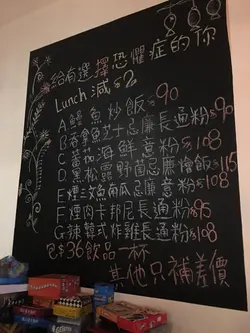 給有選擇恐懼症的祢
Lunch 減$20
A 鰻魚炒飯$90
B 吞拿魚芝士忌廉長通粉$90
C 蕃茄海鮮意粉$108
D 黑松露野菌忌廉燴飯$115
E 煙三文魚南瓜忌廉意粉$108
F 煙肉卡邦尼長通粉$95
G 辣韓式炸雞長通粉$108
包$36飲品一杯
其他只補差價